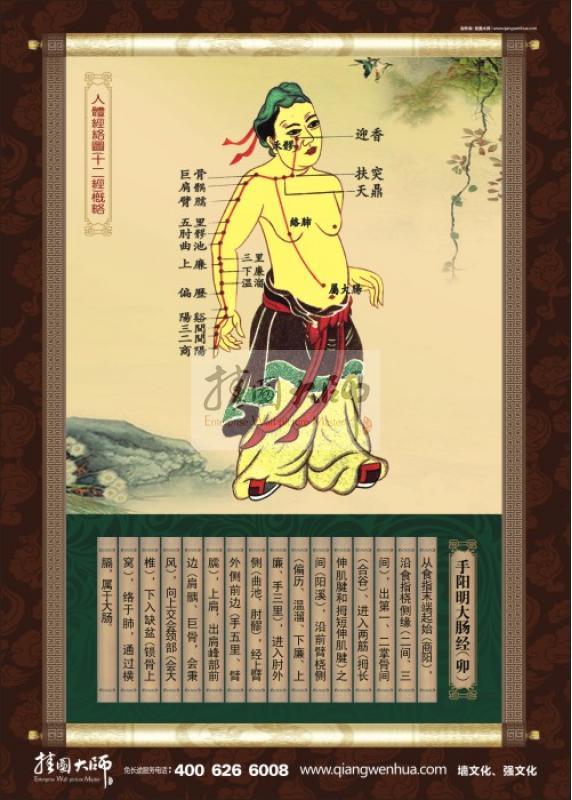 www.qiangwenhua.com
人體經絡圖十二經概略
迎香
禾髎
扶突
天鼎
巨骨
肩髃
臂臑
五里
肘髎
曲池
上廉
絡肺
三里
下廉
温溜
屬大腸
偏歷
陽谿
三間
二間
商陽
挂图大师
Enterprise Wall picture Master
手阳明大肠经（卯）
从食指末端起始（商阳），
沿食指桡侧缘（二间、三
间），出第一、二掌骨间
（合谷）、进入两筋（拇长
伸肌腱和拇短伸肌腱）之
间（阳溪），沿前臂桡侧
（偏历 温溜、下廉、上
廉、手三里），进入肘外
侧（曲池、肘髎）经上臂
外侧前边（手五里 臂
臑），上肩，出肩峰部前
边（肩髃、巨骨、会秉
风），向上交会颈部（会大
椎），下入缺盆（锁骨上
窝），络于肺，通过横
膈，属于大肠
挂图大师
Enterprise Wall picture Master
免长途服务电话：400 626 6008 www.qiangwenhua.com 墙文化、强文化